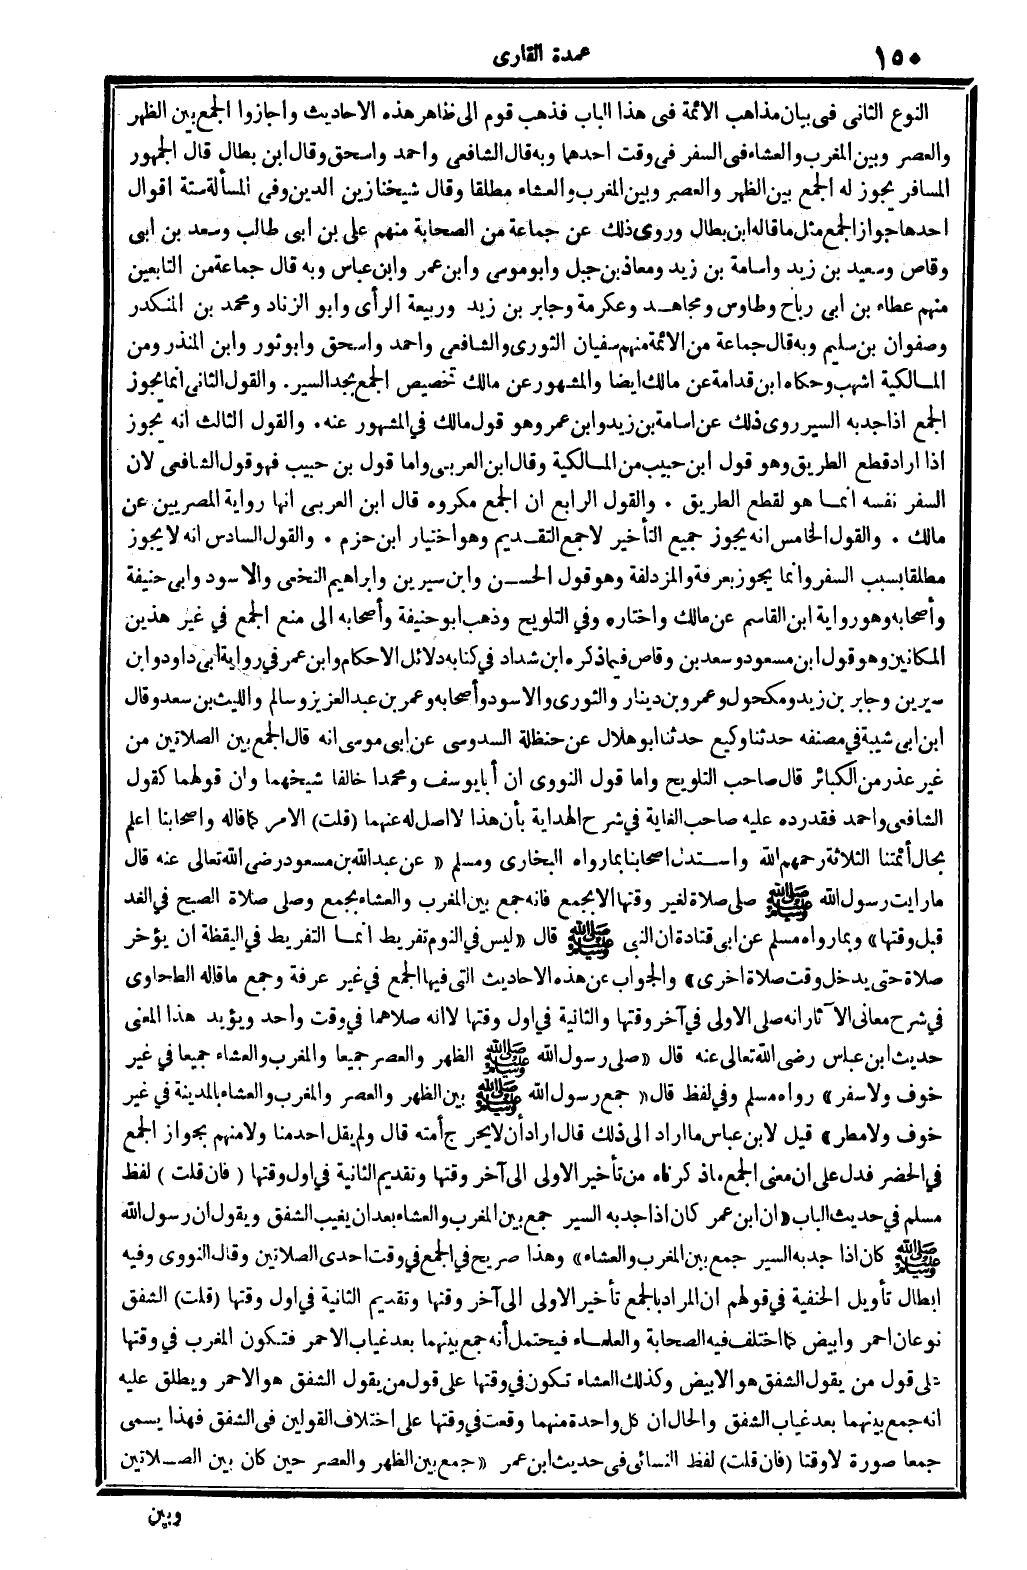 ١٥٠ عمدة القارى
النوع الثانى فى بيان مذاهب الائمة فى هذا الباب فذهب قوم الى ظاهر هذه الاحاديث واجازوا الجمع بين الظهر
والعصر وبين المغرب والعشاء فى السفر فى وقت احدهما وبه قال الشافعى واحمد واسحق وقال ابن بطال قال الجمهور
المسافر يجوز له الجمع بين الظهر والعصر وبين المغرب والعشاء مطلقا وقال شيخنا زين الدين وفى المسألة ستة اقوال
احدها جواز الجمع مثل ما قاله ابن بطال وروى ذلك عن جماعة من الصحابة منهم على بن ابى طالب وسعد بن ابى
وقاص وسعيد بن زيد واسامة بن زيد ومعاذ بن جبل وابو موسى وابن عمر وابن عباس وبه قال جماعة من التابعين
منهم عطاء بن ابى رباح وطاوس ومجاهد وعكرمة وجابر بن زيد وربيعة الرأى وابو الزناد ومحمد بن المنكدر
وصفوان بن سليم وبه قال جماعة من الائمة منهم سفيان الثورى والشافعى واحمد واسحق وابو ثور وابن المنذر ومن
المالكية اشهب وحكاه ابن قدامة عن مالك ايضا والمشهور عن مالك تخصيص الجمع بجد السير. والقول الثانى انما يجوز
الجمع اذا جد به السير روى ذلك عن اسامة بن زيد وابن عمر وهو قول مالك في المشهور عنه. والقول الثالث انه يجوز
اذا اراد قطع الطريق وهو قول ابن حبيب من المالكية وقال ابن العربى واما قول بن حبيب فهو قول الشافعى لان
السفر نفسه انما هو لقطع الطريق . والقول الرابع ان الجمع مكروه قال ابن العربى انها رواية المصريين عن
مالك . والقول الخامس انه يجوز جميع التأخير لا جمع التقديم وهو اختيار ابن حزم . والقول السادس انه لا يجوز
مطلقا بسبب السفر وانما يجوز بعرفة والمزدلفة وهو قول الحسن وابن سيرين وابراهيم النخعى والاسود وابى حنيفة
وأصحابه وهو رواية ابن القاسم عن مالك واختاره وفي التلويح وذهب ابو حنيفة وأصحابه الى منع الجمع في غير هذين
المكانين وهو قول ابن مسعود وسعد بن وقاص فيما ذكره ابن شداد في كتابه دلائل الاحكام وابن عمر في رواية ابى داود وابن
سيرين وجابر بن زيد ومكحول وعمرو بن دينار والثورى والاسود وأصحابه وعمر بن عبد العزيز وسالم والليث بن سعد وقال
ابن ابى شيبة في مصنفه حدثنا وكيع حدثنا ابو هلال عن حنظلة السدوسى عن ابى موسى انه قال الجمع بين الصلاتين من
غير عذر من الكبائر قال صاحب التلويح واما قول النووى ان أبا يوسف ومحمدا خالفا شيخهما وان قولهما كقول
الشافعى واحمد فقد رده عليه صاحب الغاية في شرح الهداية بأن هذا لا اصل له عنهما (قلت) الامر كما قاله واصحابنا اعلم
بحال أئمتنا الثلاثة رحمهم الله واستدل اصحابنا بما رواه البخارى ومسلم « عن عبد الله بن مسعود رضى الله تعالى عنه قال
ما رايت رسول الله ﷺ صلى صلاة لغير وقتها الا بجمع فانه جمع بين المغرب والعشاء بجمع وصلى صلاة الصبح في الغد
قبل وقتها» وبما رواه مسلم عن ابى قتادة ان النبى ﷺ قال «ليس في النوم تفريط انما التفريط في اليقظة ان يؤخر
صلاة حتى يدخل وقت صلاة اخرى» والجواب عن هذه الاحاديث التى فيها الجمع في غير عرفة وجمع ما قاله الطحاوى
في شرح معانى الآثار انه صلى الاولى في آخر وقتها والثانية في اول وقتها لا انه صلاهما في وقت واحد ويؤيد هذا المعنى
حديث ابن عباس رضى الله تعالى عنه قال «صلى رسول الله ﷺ الظهر والعصر جميعا والمغرب والعشاء جميعا في غير
خوف ولا سفر» رواه مسلم وفي لفظ قال« جمع رسول الله ﷺ بين الظهر والعصر والمغرب والعشاء بالمدينة في غير
خوف ولا مطر» قيل لابن عباس ما اراد الى ذلك قال اراد أن لا يحرج أمته قال ولم يقل احد منا ولا منهم بجواز الجمع
في الحضر فدل على ان معنى الجمع ما ذكرناه من تأخير الاولى الى آخر وقتها وتقديم الثانية في اول وقتها ( فان قلت ) لفظ
مسلم في حديث الباب «ان ابن عمر كان اذا جد به السير جمع بين المغرب والعشاء بعد ان يغيب الشفق ويقول ان رسول الله
ﷺ كان اذا جد به السير جمع بين المغرب والعشاء» وهذا صريح في الجمع في وقت احدى الصلاتين وقال النووى وفيه
ابطال تأويل الحنفية في قولهم ان المراد بالجمع تأخير الاولى الى آخر وقتها وتقديم الثانية في اول وقتها (قلت) الشفق
نوعان احمر وابيض كما اختلف فيه الصحابة والعلماء فيحتمل أنه جمع بينهما بعد غياب الاحمر فتكون المغرب في وقتها
على قول من يقول الشفق هو الابيض وكذلك العشاء تكون في وقتها على قول من يقول الشفق هو الاحمر ويطلق عليه
انه جمع بينهما بعد غياب الشفق والحال ان كل واحدة منهما وقعت في وقتها على اختلاف القولين فى الشفق فهذا يسمى
جمعا صورة لا وقتا (فان قلت) لفظ النسائى فى حديث ابن عمر «جمع بين الظهر والعصر حين كان بين الصلاتين
وبين